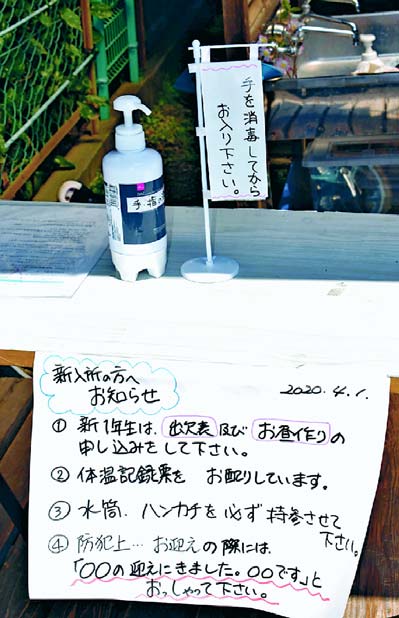 手を消毒してから
お入り下さい。
手・指の
新入所の方へ
お知らせ
2020.4.1.
① 新1年生は、出欠表及びお昼作りの
申し込みをして下さい。
② 体温記録票を お配りしています。
③ 水筒、ハンカチを必ず持参させて
下さい。
④ 防犯上…お迎えの際には、
「〇〇の迎えにきました。〇〇です」と
おっしゃって下さい。